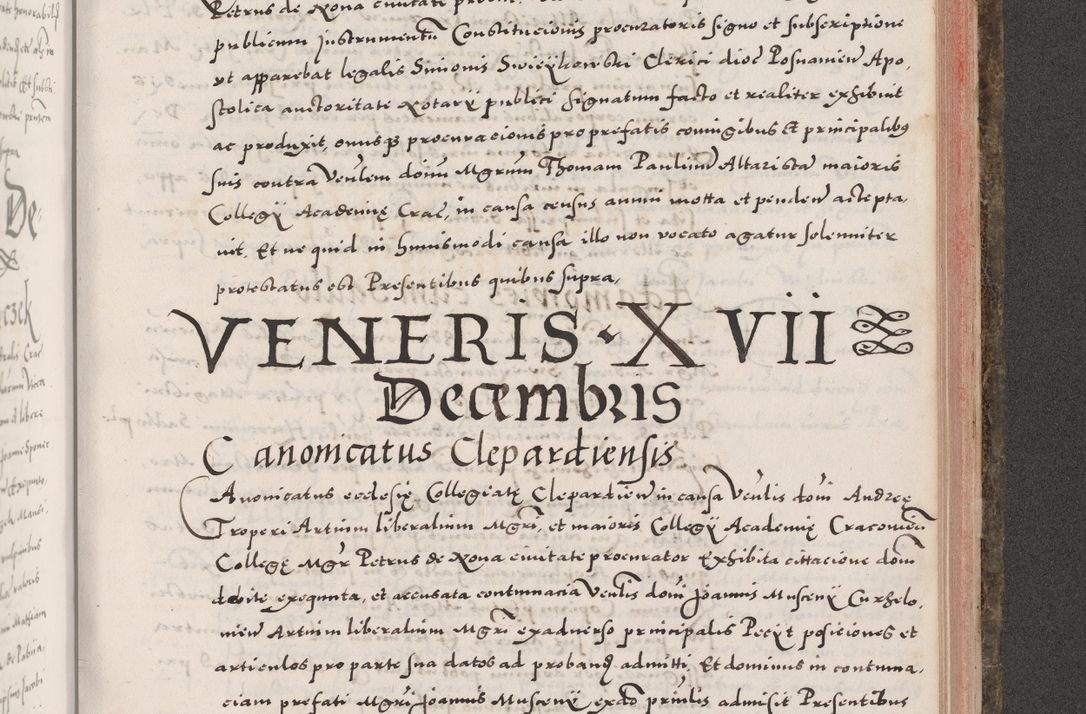 Petrus de Nova civitate
publicum Instrumentum Constitucionis procuratoris signo et subscriptione
ut apparebat legalis Simonis Swiezykowski Clerici dioc Posnanien Apo,
stolica auctoritate Notarii publici signatum facto et realiter exhibuit
ac produxit, onusque procuracionis pro prefatis coniugibus Et principalibus
suis contra Venlem domnum Mgrum Thomam Paulinum Altaristam maioris
Collegii Academiae Crac, in causa census annui motta et penden accepta,
uit. Et ne quid in huiusmodi causa illo non vocato agatur solenniter
protestatus est Presentibus quibus supra,
VENERIS · XVII
Decembris
Canonicatus Clepardiensis
Canonicatus ecclesię Collegiatę Clepardien in causa Venlis domi Andreę
Troperi Artium liberalium Mgri, et maioris Collegii Academię Cracovien
Collegę Mgr Petrus de Nova civitate procurator Exhibita cittacione domi
debite exequuta, et accusata contumacia Venlis domi Joannis Musceny Curzelo,
nien Artium liberalium Mgri exadverso principalis Pecyt posiciones et
articulos pro parte sua datos ad proband admitti. Et dominus in contuma,
ciam prefati Mgri Joannis Musceny exado prinlis admisit Presentibus